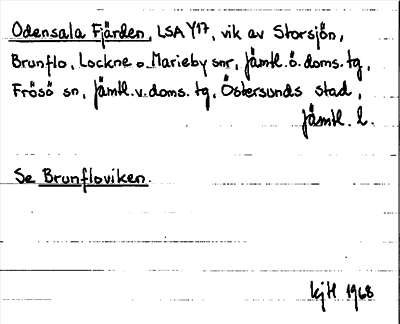 Odensala Fjärden, LSA Y17, vik av Storsjön,
Brunflo, Lockne o. Marieby snr, Jämtl. ö. doms. tg,
Frösö sn, Jämtl. v. doms. tg, Östersunds stad,
Jämtl. l.
Se Brunfloviken.
kjH 1968